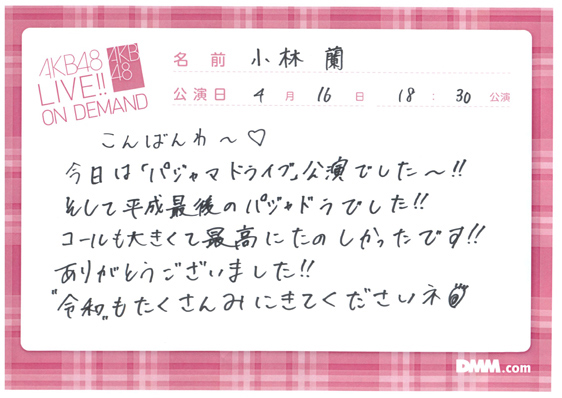 AKB48
LIVE!!
ON DEMAND
AKB
48
名前 小林 蘭
公演日 4月 16日 18:30 公演
こんばんわ〜♡
今日は「パジャマドライブ」公演でした〜!!
そして平成最後のパジャドラでした!!
コールも大きくて最高にたのしかったです!!
ありがとうございました!!
"令和"もたくさんみにきてくださいネ
DMM.com